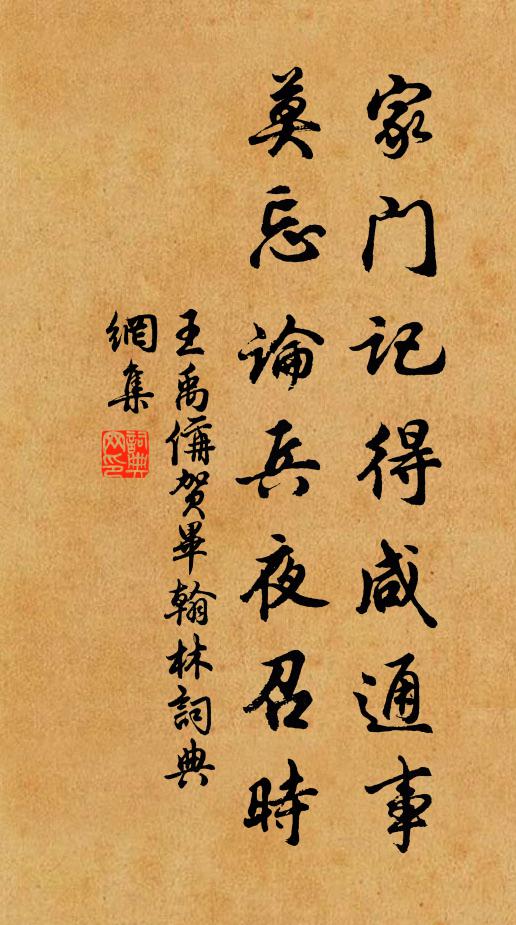 家门记得咸通事
莫忘論兵夜召時
王禹偁賀畢翰林詞典
網集
詞典
网印